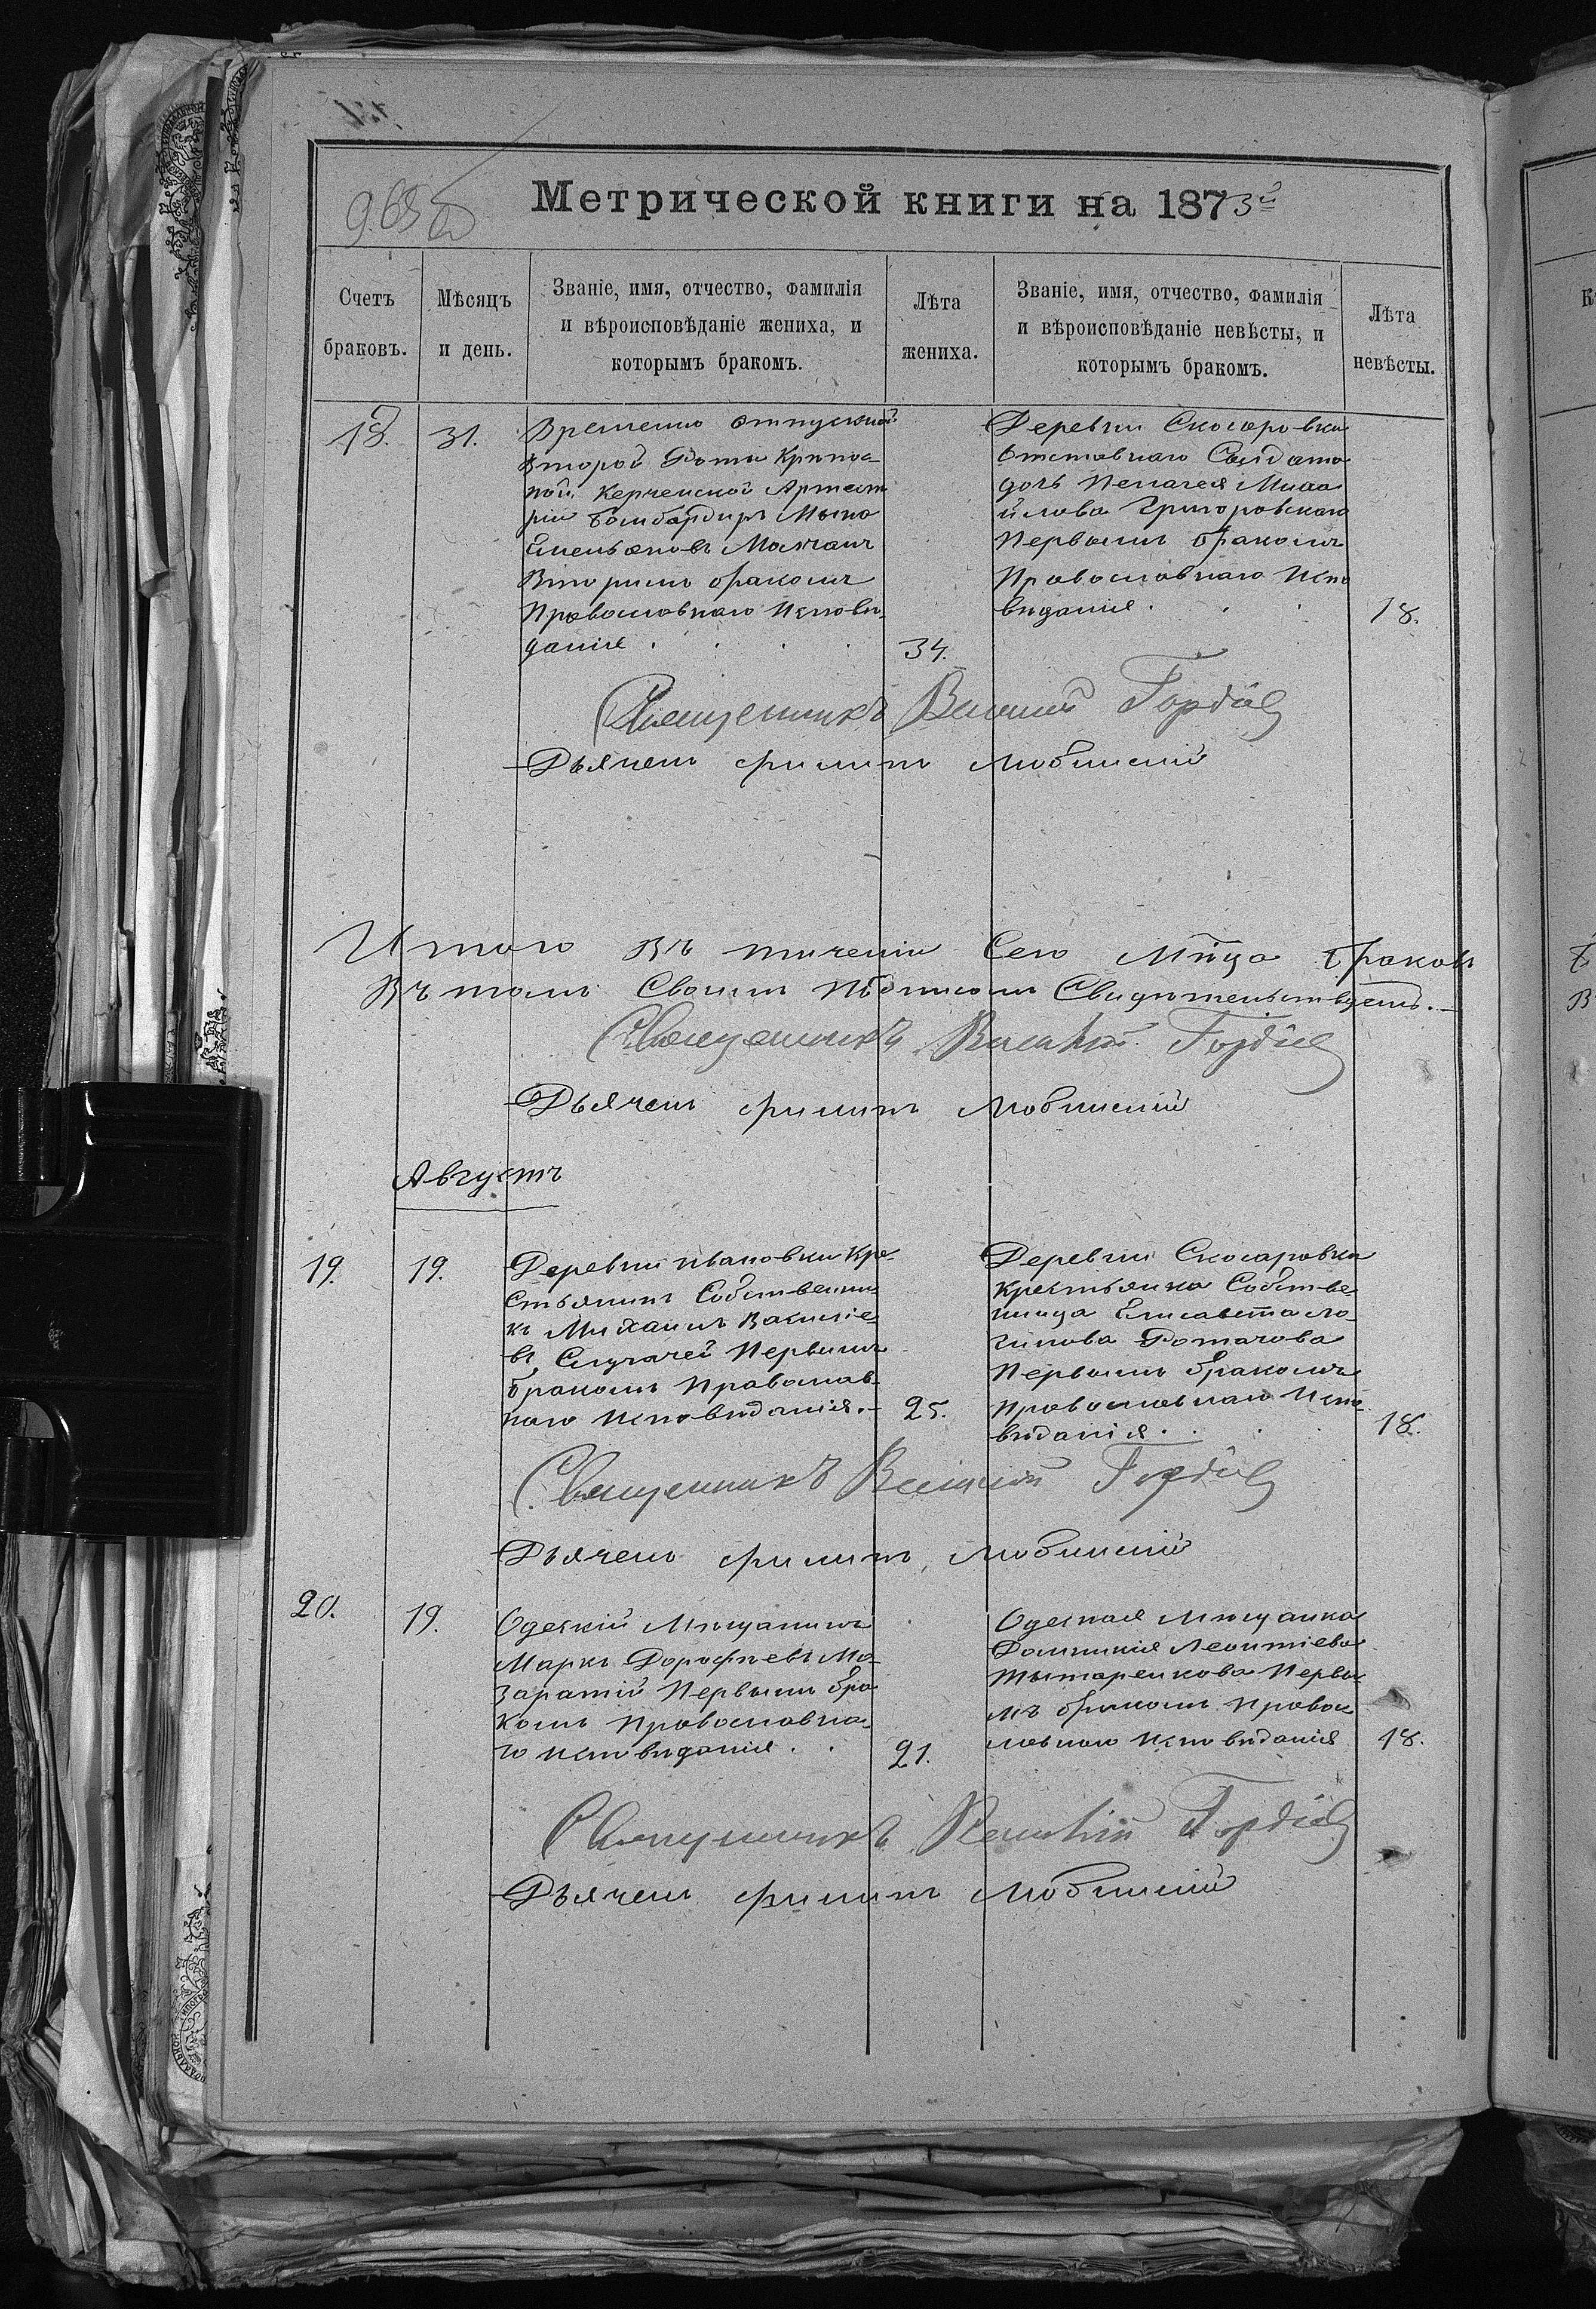 965 об
Метрической книги на 1873й
Счетъ браковъ.
Мѣсяцъ и день.
Званіе, имя, отчество, фамилія и вѣроисповѣданіе жениха, и которымъ бракомъ.
Лѣта жениха.
Званіе, имя, отчество, фамилія и вѣроисповѣданіе невѣсты, и которымъ бракомъ.
Лѣта невѣсты.
18.
31.
Временно отпускной
второй Роты Крѣпос-
ной Керченской Артил
ріи Бомбардиръ
Емельяновъ Молчанъ
Вторымъ бракомъ
Православнаго Исповѣ-
данія
34.
Деревни Скосаровки
Отставнаго Солдата
дочь Пелагея Миха
йлова Григоровская
Первымъ бракомъ
Православнаго Испо
вѣданія
18.
Священникъ Василій Гордіев
Дьячекъ Филипъ Любинскій
Итого Въ теченіи Сего Мѣца браковъ
Въ томъ Своимъ Подписомъ Свидѣтельствуемъ.
Священникъ Василій Гордіев
Дьячекъ Филипъ Любинскій
Августъ
19.
19.
Деревни Ивановки Кре-
стьянинъ Собственни-
къ Михаилъ Василіе-
въ Слугачей Первымъ
бракомъ Православ-
наго Исповѣданія.
25.
Деревни Скосаровки
Крестьянка Собстве-
ница Елисавета Ло-
гинова Ротачова
Первымъ бракомъ
Православнаго Испо-
вѣданія
18.
Священникъ Василій Гордіев
Дьячекъ Филипъ Любинскій
20.
19.
Одескій Мѣщанинъ
Маркъ Дорофѣевъ Ма-
заратій Первымъ бра
комъ Православна-
го Исповѣданія
21.
Одеская Мѣщанка
Домникія Леонтіева
Тытаренкова Первы
мъ бракомъ Правос
лавнаго Исповѣданія
18.
Священникъ Василій Гордіев
Дьячекъ Филипъ Любинскій